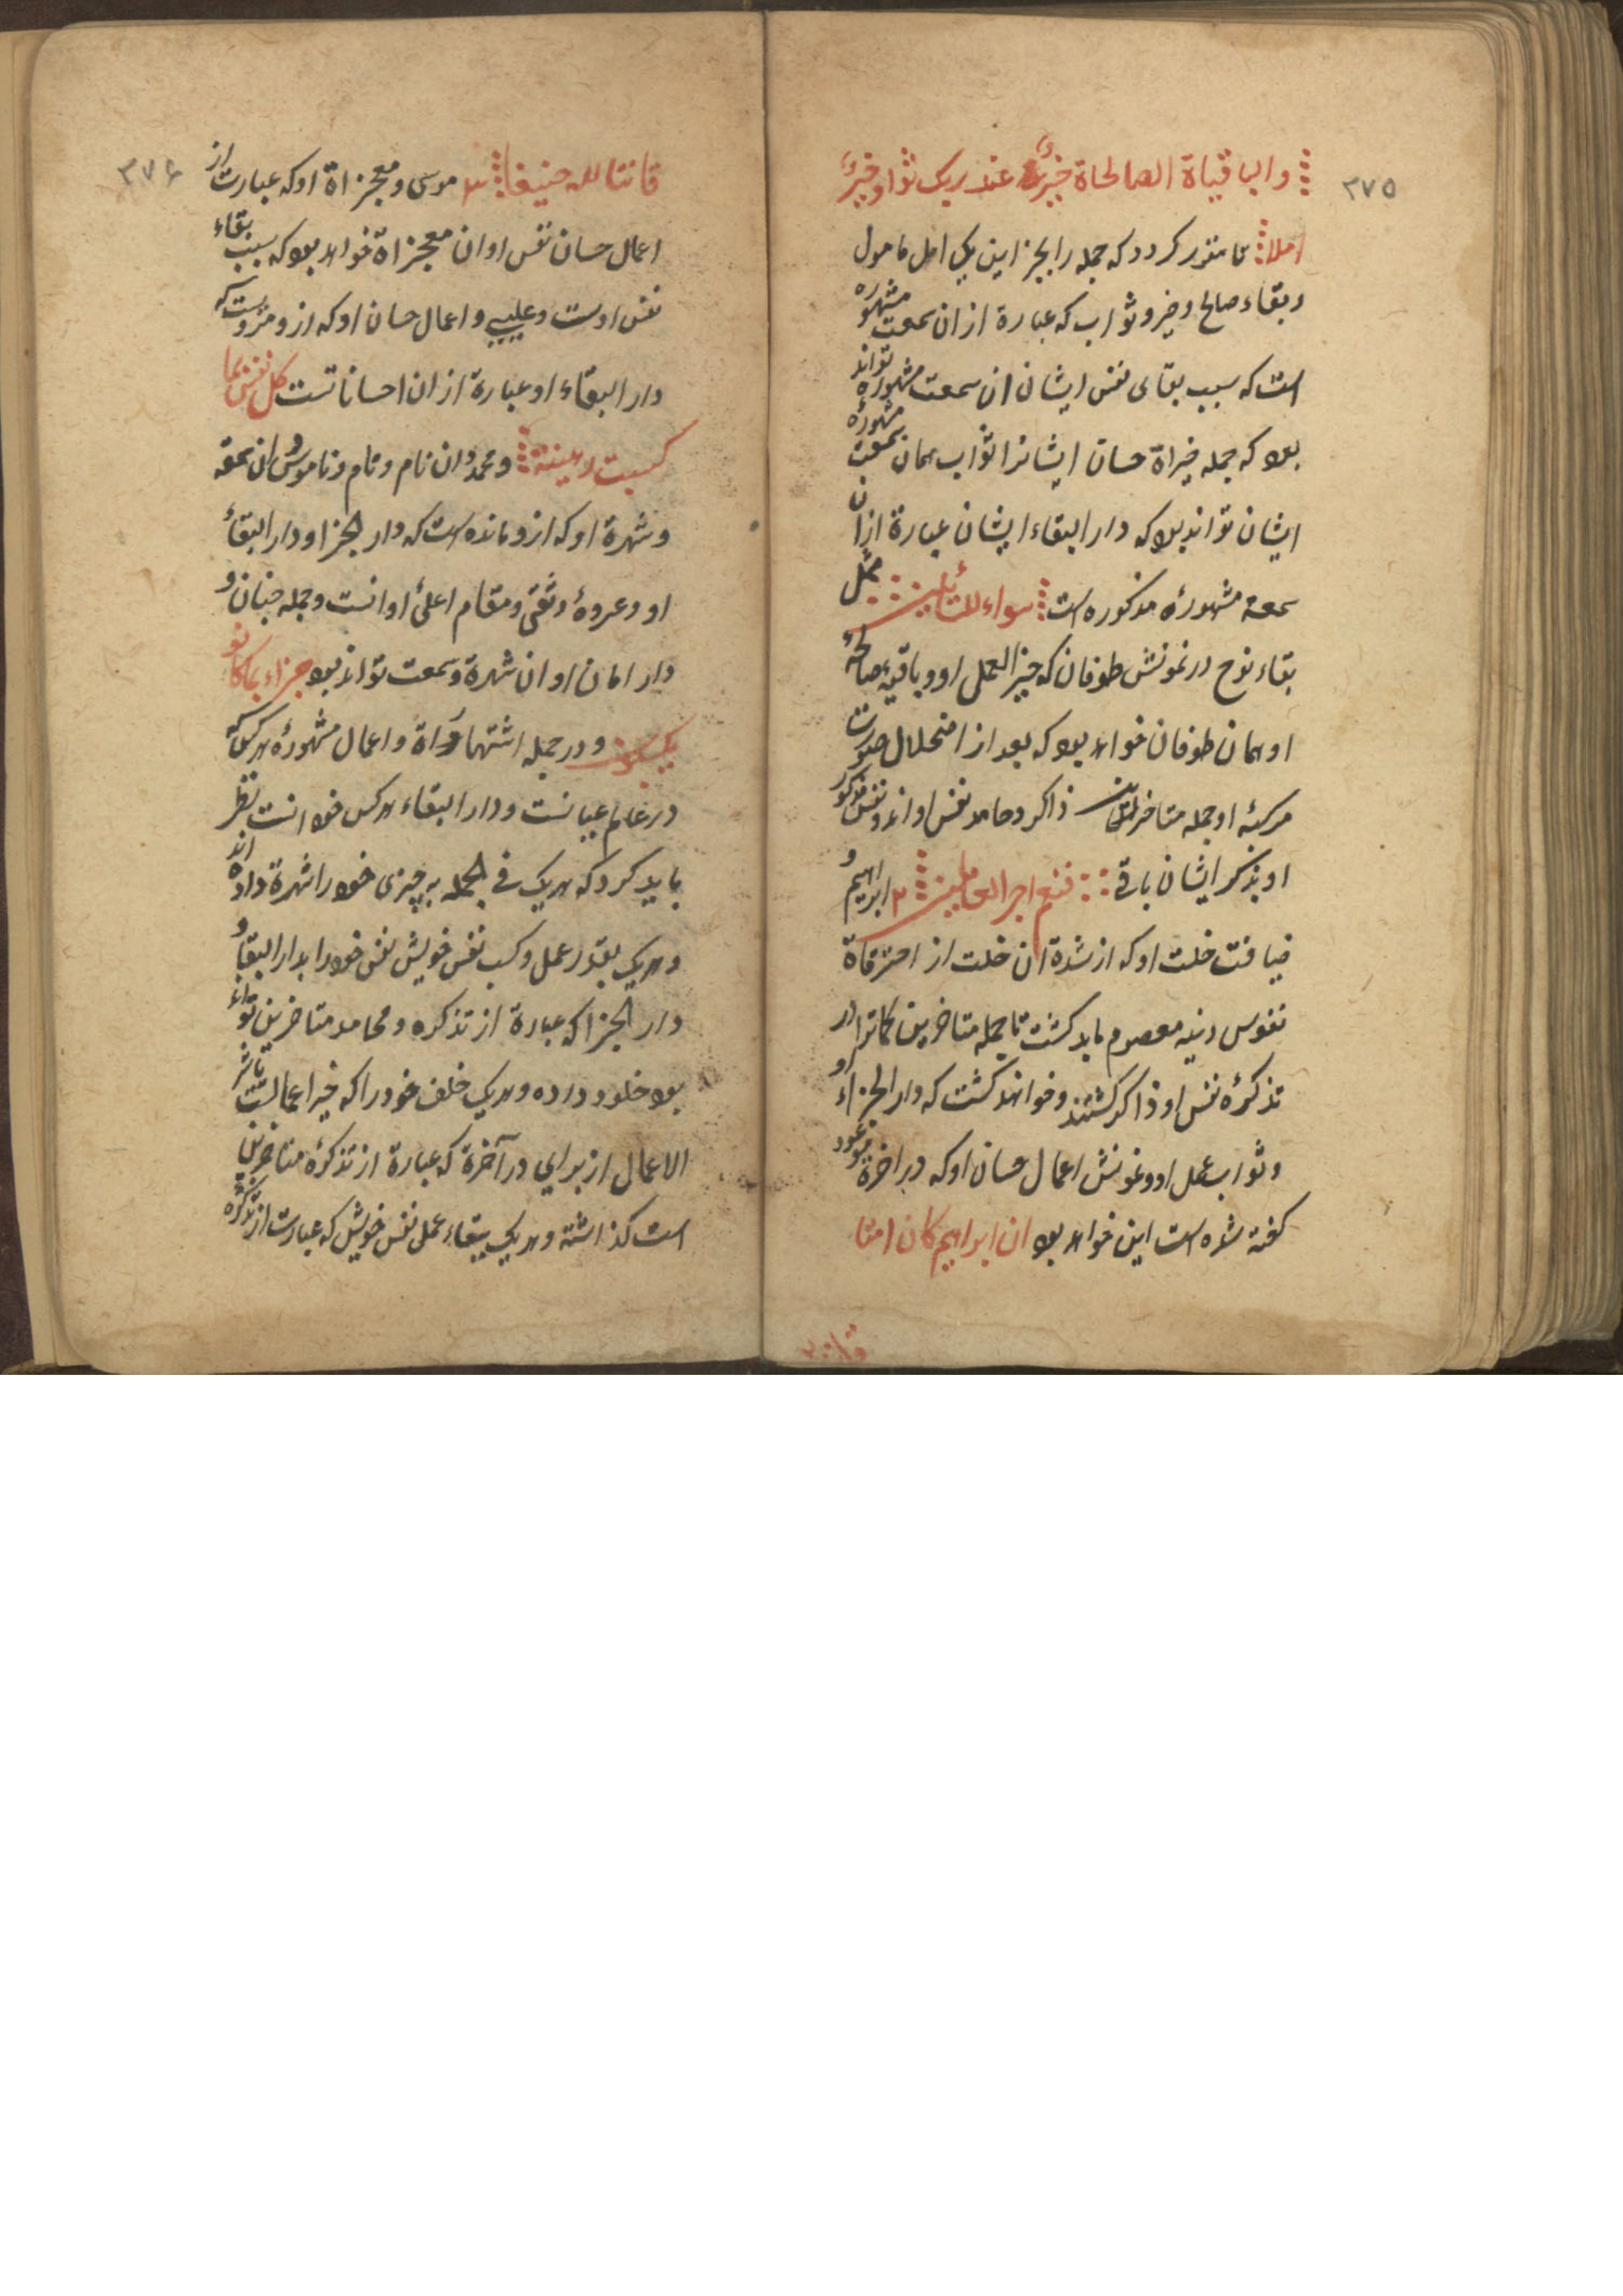 ٣٧٥
والباقیاة الصالحاة خیرٌ عند ربک ثوا وخیرٌ
املا تا متنور کردد که جمله را بجز این یک امل مامول
وبقاء صالح وخیر وثواب که عبارة ازان سمعت مشهوره
است که سبب بقای نفس ایشان ان سمعت مشهوره تواند
بود که جمله خیراة حسان ایشانرا ثواب همان سمعت مشهورهٔ
ایشان تواند بود که دار البقاء ایشان عبارة ازان
سمعة مشهورهٔ مذکوره است سواء للسائلین مثل
بقاء نوح در نمونش طوفان که خیر العمل او وباقیهٔ صالحهٔ
او همان طوفان خواهد بود که بعد از اضمحلال صورت
مرکبهٔ او جمله متاخرین ذاکر وحامد نفس او اند ونفس مذکور
او بذکر ایشان باقی فنعم اجر العاملین ٢ ابرهیم و
ضیافت خلت او که از شدة ان خلت از احترقاة
نفوس دنیه معصوم باید کشت تا جمله متاخرین کماترا در
تذکرهٔ نفس او ذاکر کشتند وخواهند کشت که دار الجزاء و
وثواب عمل او ونمونش اعمال حسان او که در اخرة موعود
کفته شده است این خواهد بود ان ابراهیم کان امتا
قانتا
٣٧۶
قانتا لله حنیفا ٣ موسی ومعجزاة او که عبارت از
اعمال حسان نفس او ان معجزاة خواهد بود که سبب بقاء
نفس اوست وعلیهی واعمال حسان او که ازو مرویست که
دار البقاء او عبارة ازان احساناتست کل نفس بما
کسبت رهینة ومحمد وان نام ونام وناموس وان سمعه
وشهرة او که ازو مانده است که دار الجزا ودار البقاء
او وعروهٔ وثقی ومقام اعلی او انست وجمله جنان و
دار امان او ان شهرة وسمعت تواند بود جزاء بما کانو
یکسبون ودر جمله اشتهاراة واعمال مشهورهٔ هر کس که
در عالم عیانست ودار البقاء هر کس خود انست نظر
باید کرد که هریک فی الجمله به چیزی خود را شهرة داده اند
وهریک بقدر عمل وکسب نفس خویش نفس خود را بدار البقاء و
دار الجزا که عبارة از تذکره ومحامد متاخرین تواند
بود خلود داده وهریک خلف خود را که خیر اعمالست تاشر
الاعمال از برای در آخرة که عبارة از تذکرهٔ متاخرین
است کذاشته وهریک ببقاء عمل نفس خویش که عبارت از تذکره